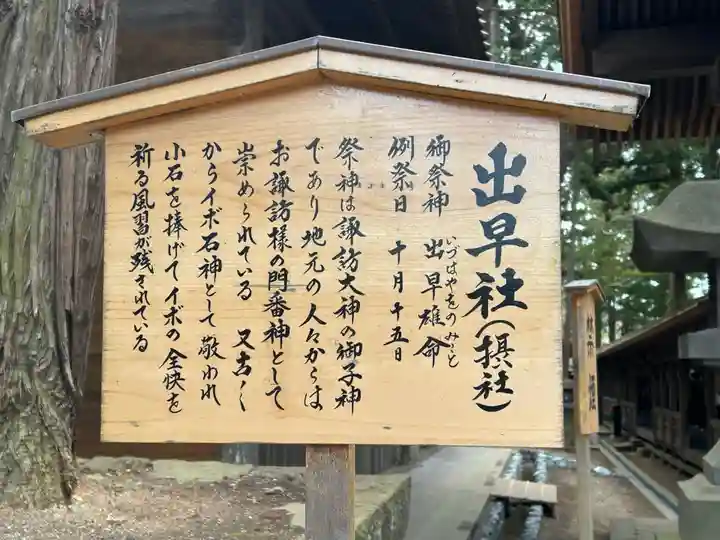 出早社（摂社）
御祭神　出早雄命
いづはやをのみこと
例祭日　十月十五日
祭神は諏訪大神の御子神
であり地元の人々からは
お諏訪様の門番神として
崇められている　又古く
からイボ石神として敬われ
小石を捧げてイボの全快を
祈る風習が残されている